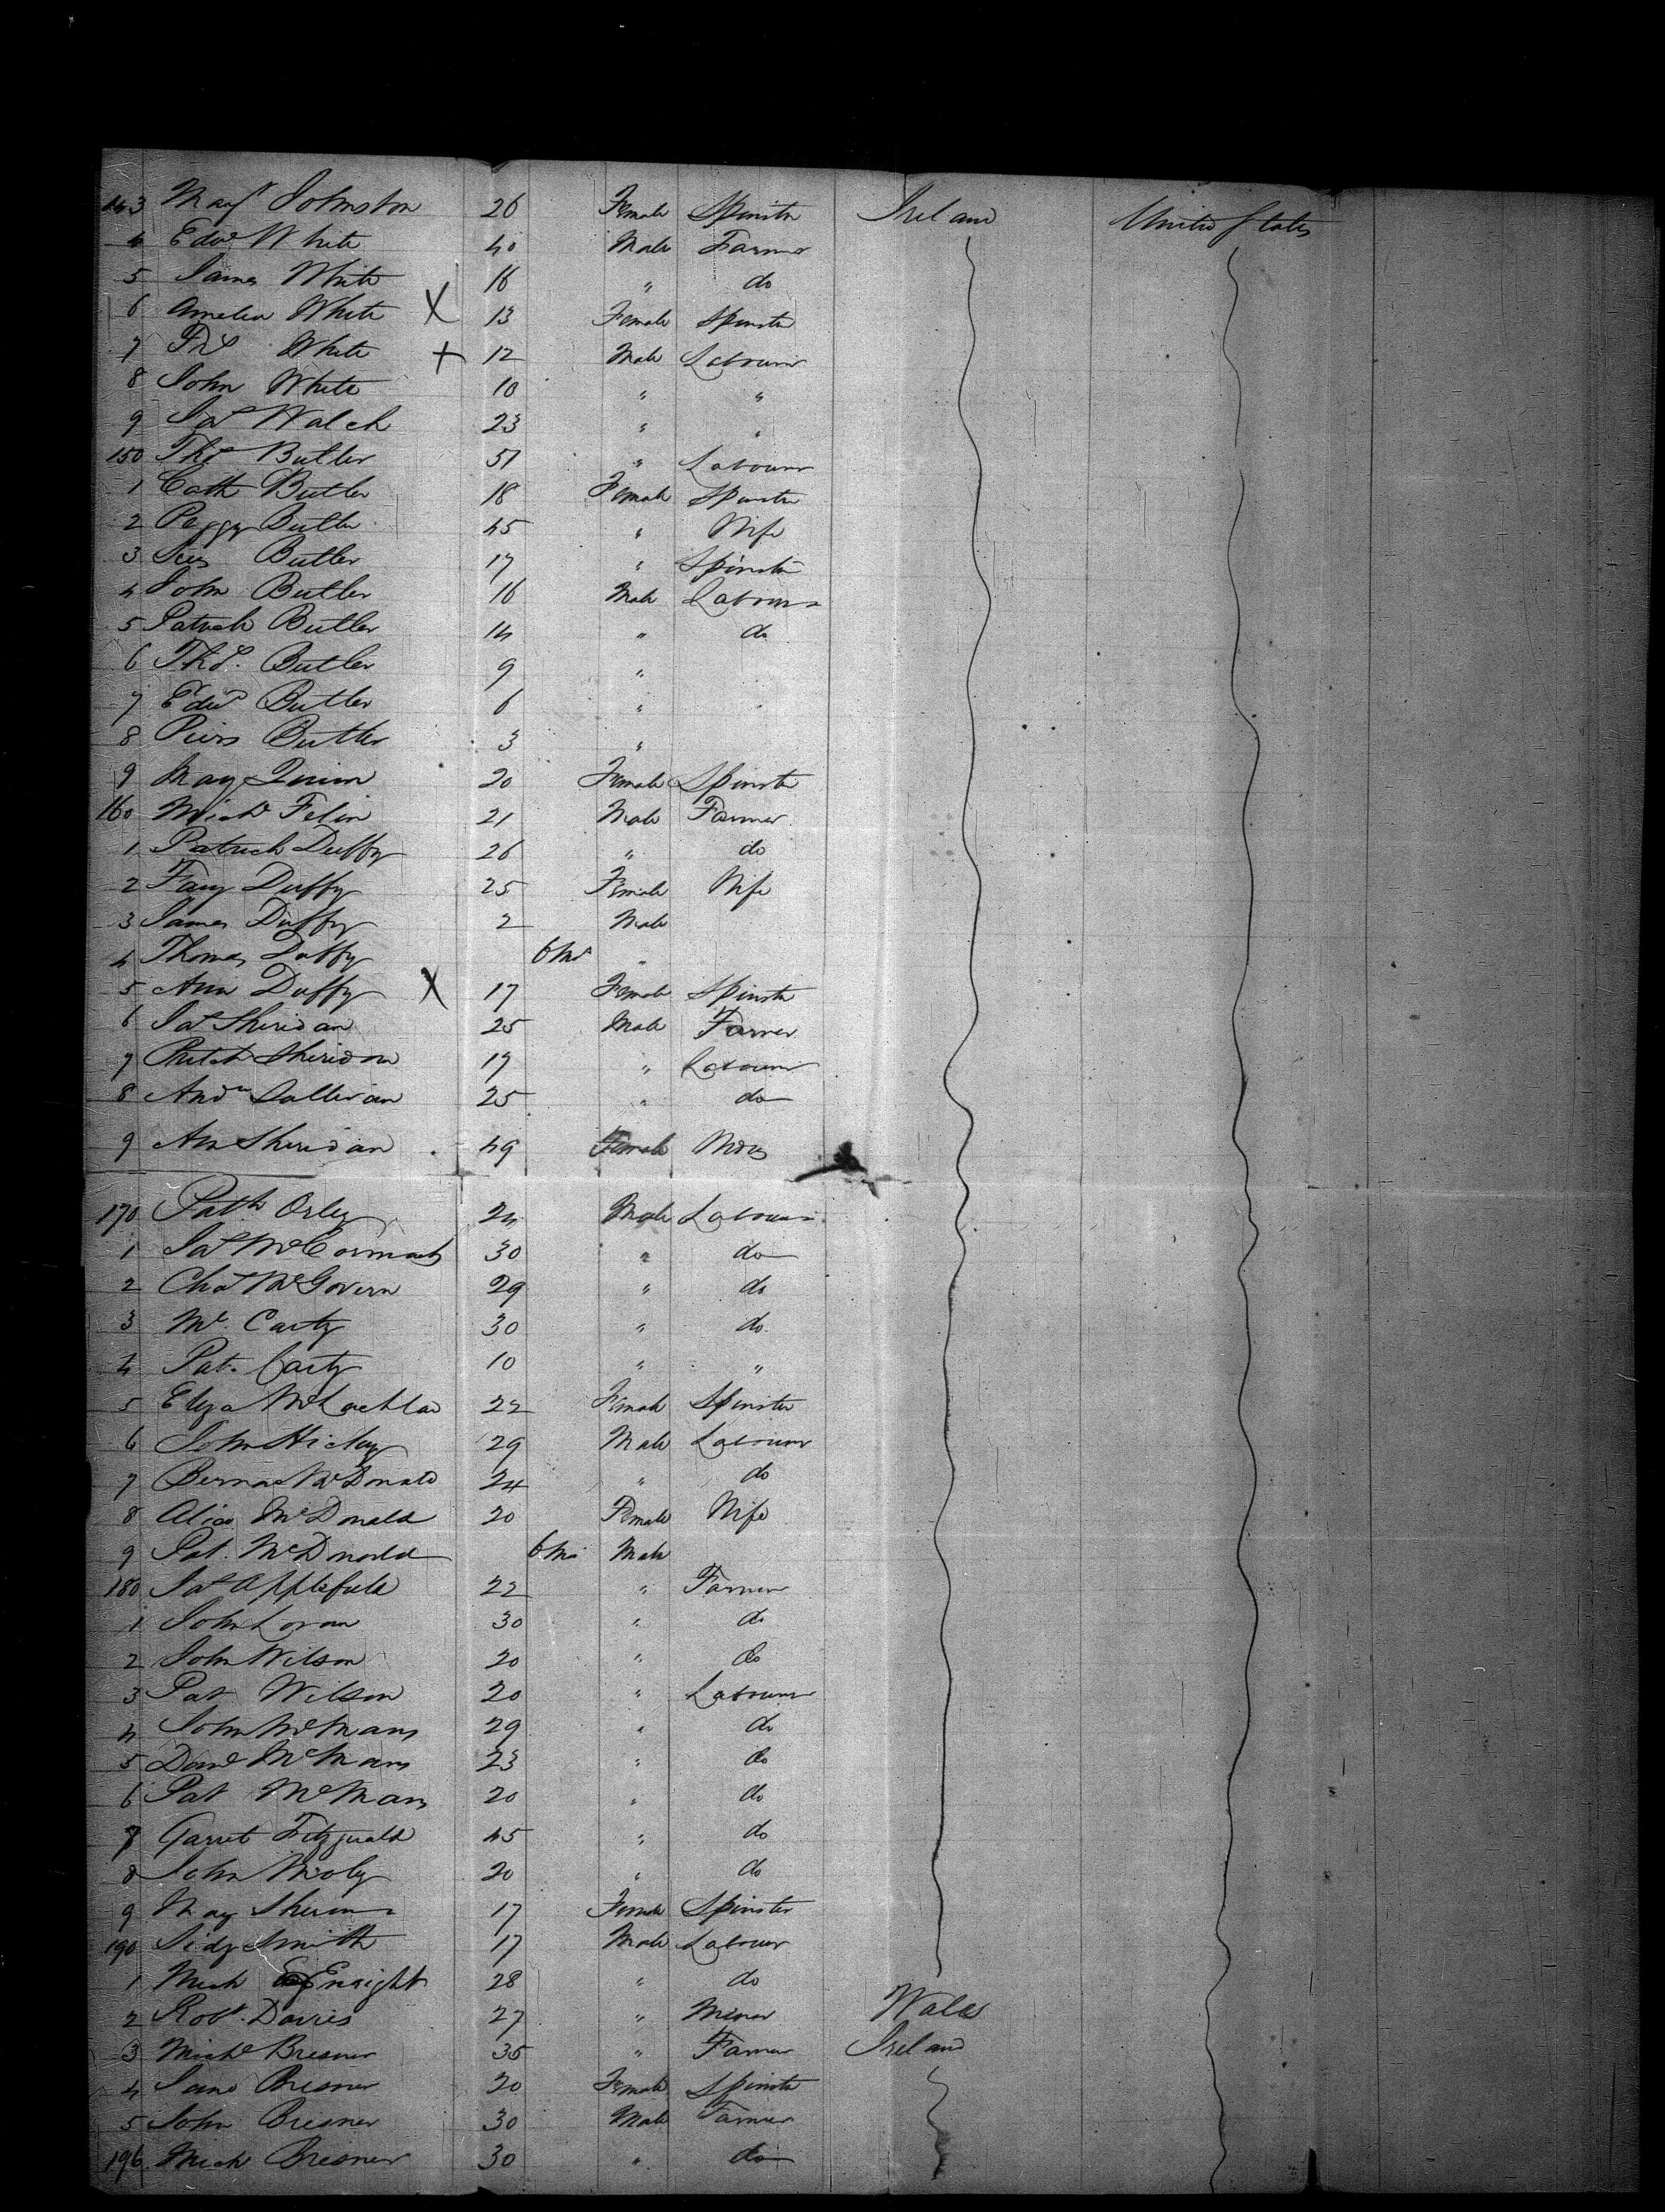 143 Mary Johnston 26 Female Spinstr Ireland United States
4 Edwd White 40 Male Farmer
5 James White 16 " do
6 Amelia White X 13 Female Spinstr
7 White + 12 Male Labourer
8 John White 10 " "
9 Jas Walch 23 " "
150 Thos Butler 51 " Labourer
1 Cath Butler 18 Female Spinstr
2 Peggy Butler 45 " Wife
3 Butler 17 " Spinstr
4 John Butler 16 Male Labourer
5 Patrick Butler 14 " do
6 Thos. Butler 9 "
7 Edwd Butler 6 "
8 Piers Butler 3 "
9 May Quinn 20 Female Spinstr
160 Michl Felin 21 Male Farmer
1 Patrick Duffy 26 " do
2 Fany Duffy 25 Female Wife
3 James Duffy 2 Male
4 Thomas Duffy 6 Ms "
5 Ann Duffy X 17 Female Spinstr
6 Jas Sheridan 25 Male Farmer
7 Sheridan 17 " Labourer
8 Andw Sullivan 25 " do
9 Ann Sheridan 49 Female
170 Path Orley 24 Male Labourer
1 Jas McCormack 30 " do
2 Chas McGovern 29 " do
3 Ml. Carty 30 " do
4 Pat. Carty 10 " "
5 Eliza McLachlan 22 Female Spinster
6 John Hickey 29 Male Labourer
7 Bernad McDonald 24 " do
8 Alice McDonald 20 Female Wife
9 Pat. McDonald 6 Ms Male
180 Jas Applefield 22 " Farmer
1 John Loran 30 " do
2 John Wilson 20 " do
3 Pat Wilson 20 " Labourer
4 John McMans 29 " do
5 Danl McMans 23 " do
6 Pat McMans 20 " do
7 Garret Fitzgerald 45 " do
8 John 20 " do
9 May 17 Female Spinster
190 Sidy Smith 17 Male Labourer
1 Mich Enright 28 " do
2 Robt. Davies 27 " Miner Wales
3 Michl Bresner 35 " Farmer Ireland
4 Jane Bresner 20 Female Spinstr
5 John Bresner 30 Male Farmer
196 Mich Bresner 30 " do